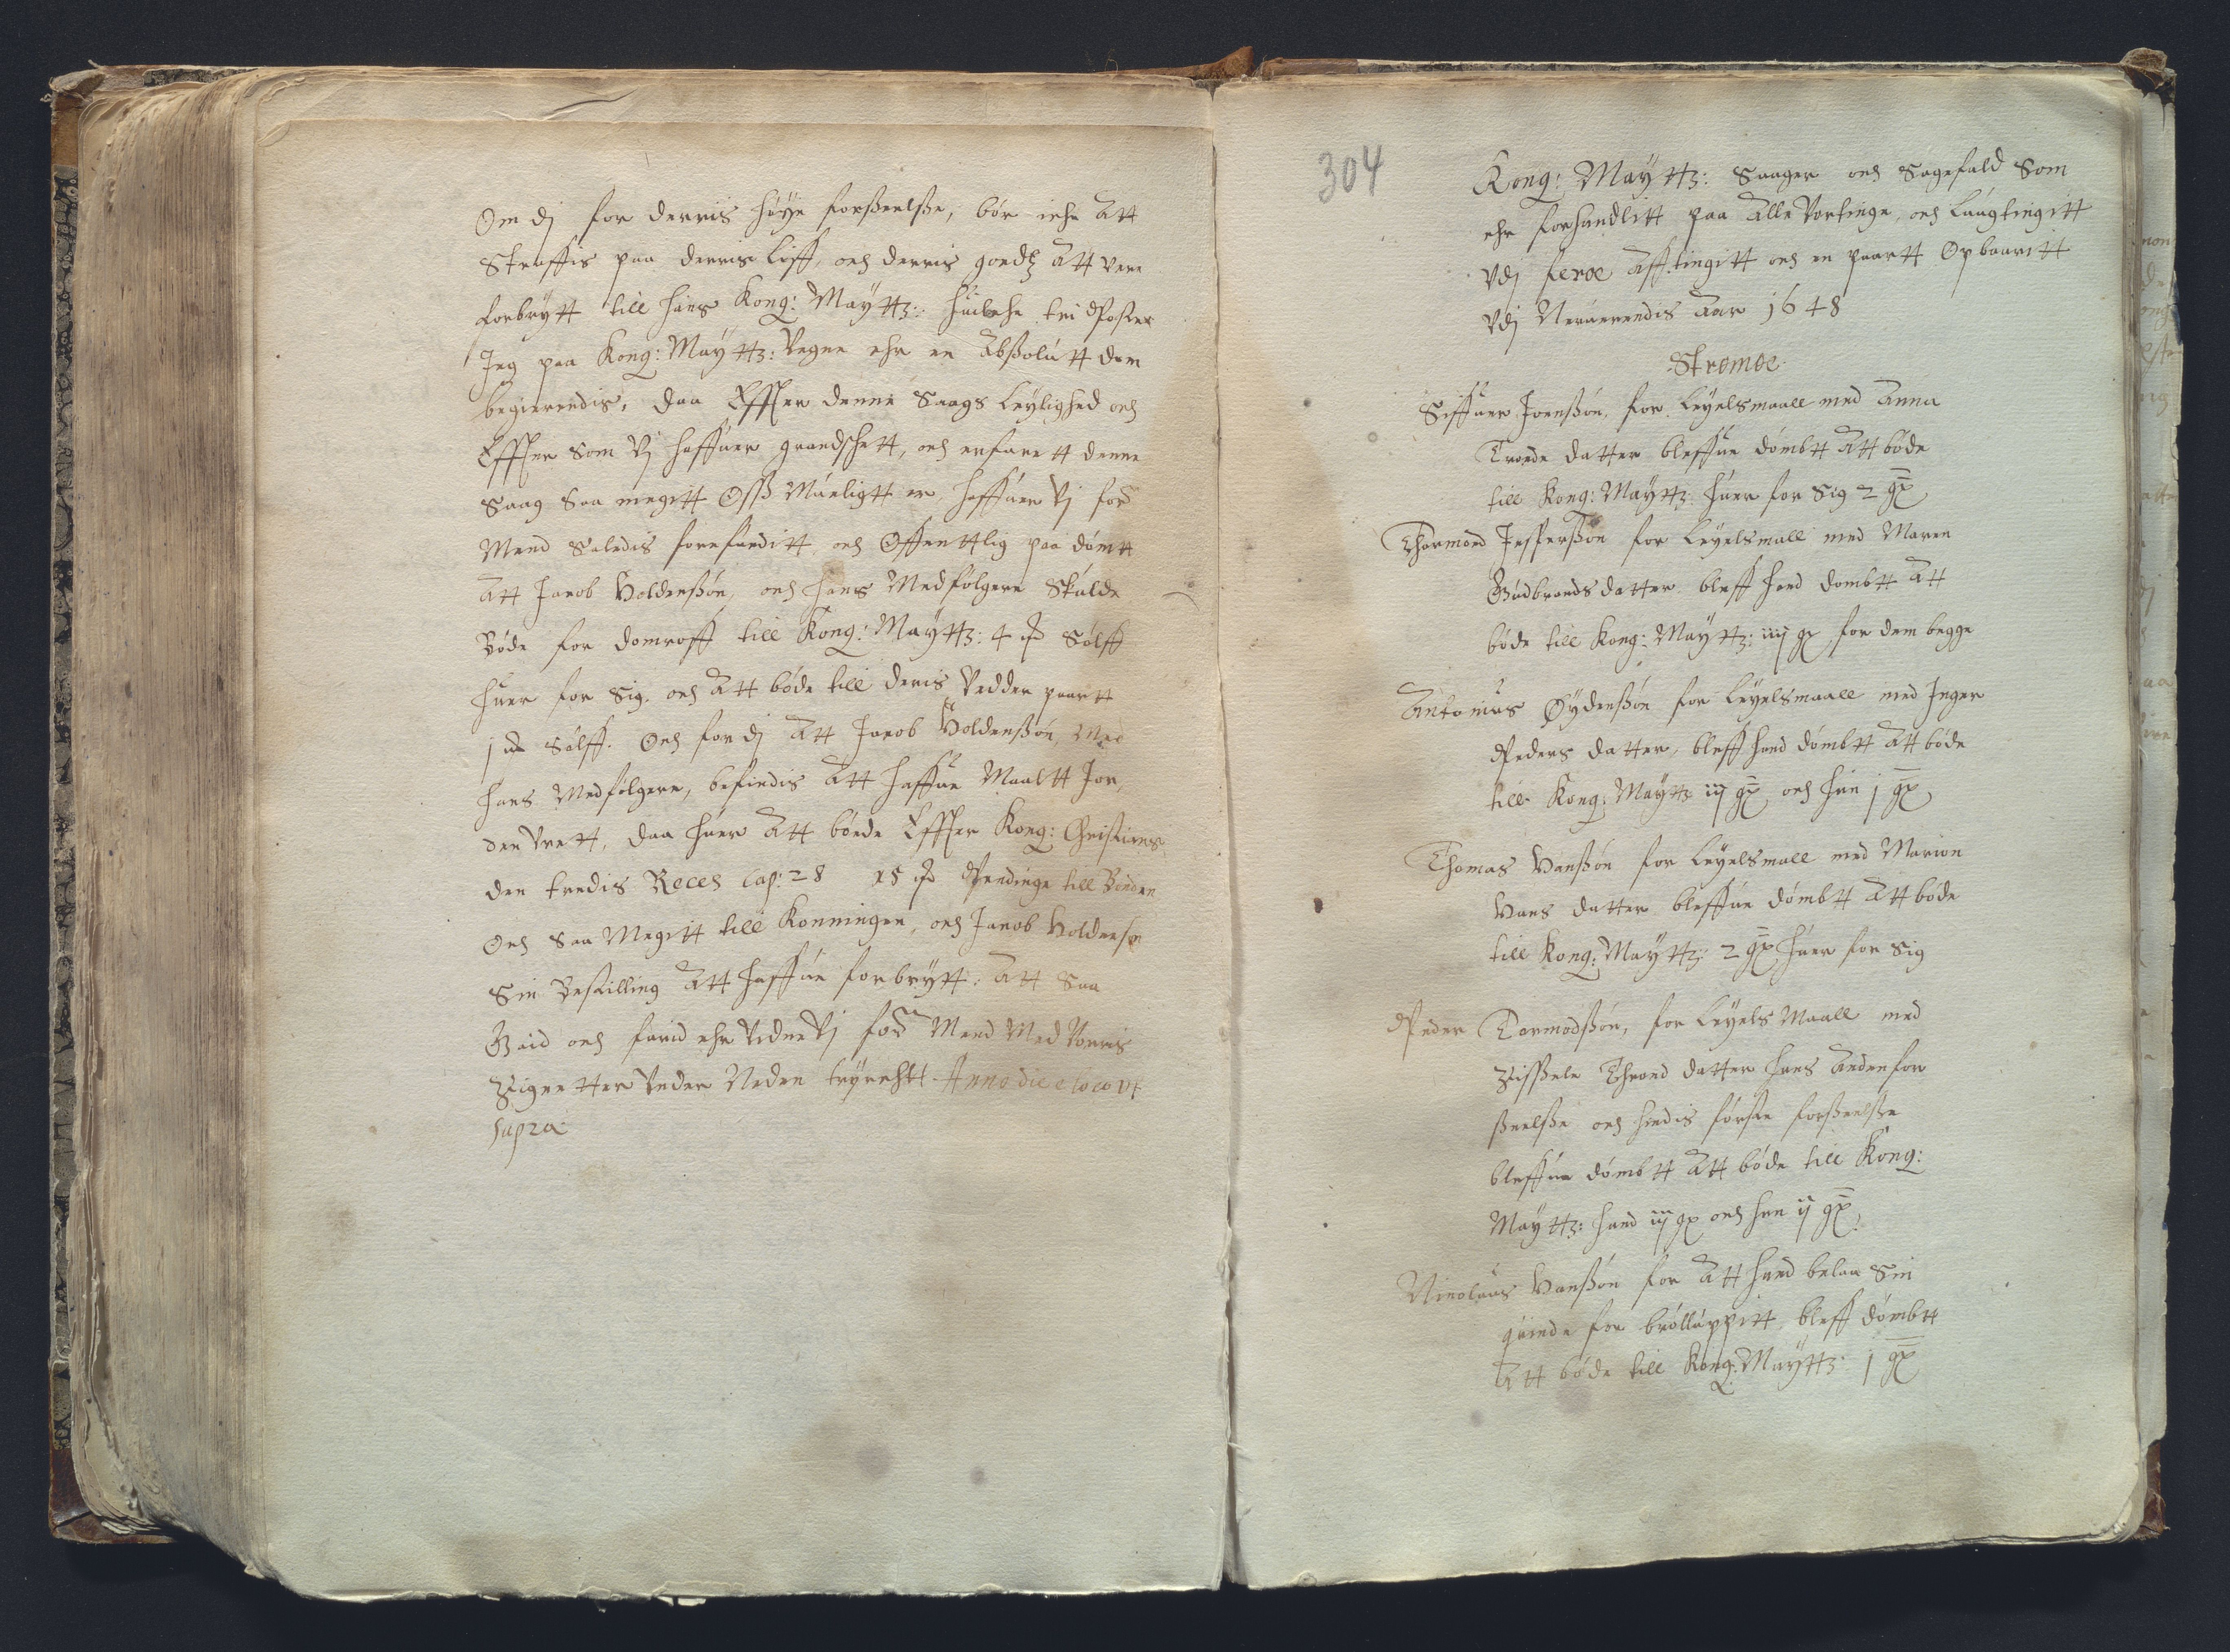 Om dj for derris høye forßeelße, bør iche Att
Straffis paa derris Liff, och derris goedtz Att vere
forbrytt till hans Kong: Maÿttz: huilche tri Poster
Jeg paa Kong: Maÿttz: Vegne ehr en Abßolutt dom
begierendis, daa Effter denne Saags Leylighed och
Effter Som Vj haffuer grandschett, och erfarett denne
Saag Saa megitt Oss Mueligtt er, haffuer Vj for:
Mend Saledis forefunditt, och Offenttlig paa dømtt
Att Jacob Joldenßøn, och hans Medfølgere Skulde
Bøde for domroff till Kong: Maÿttz: 4 Sølff
huer for Sig. och Att bøde till deris Vedder partt
j Sølff. Och for dj Att Jacob Joldenßøn, Med
hans Medfølgere, befindis Att haffue Maaltt Jor,
den Vrett, daa huer Att bøede Effter Kong: Christians
den tredis Reces Cap: 28 15 Pendinge till Bonden
Och Saa Megitt till Konningen, och Jacob Joldensøn
Sin Bestilling Att haffue forbrytt: Att Saa
Gaid och farid ehr Vidner Vj for: Mend Med Vorris
Zignetter Under Neden trÿchtt. Anno die e loco vt
supra
304
Kong: Maÿttz: Saager och Sagefald Som
ehr forhandlitt paa Alle Vortinge, och Laugtingitt
Vdj feroe Afftingitt och en paartt Opbaaritt
Vdj Neruerendis Aar 1648
Strømøe
Siffuer Joenßøn, for Leyelsmaall med Anna
Troede datter bleffue dømbtt Att bøde
till Kong: Maÿttz: huer for Sig 2 gx
Thormoed Jesperßøn for Leyelsmall med Maren
Gudbrandsdatter bleff hand dombtt Att
bøde till Kong: Maÿttz: iiij gx for dem begge
Antonius Øydenßøn for Leyelsmaall med Inger
Peders datter, bleff hand dømbtt Att bøde
till Kong: Maÿttz ij gx och hun j gx
Thomas Hanßøn for Leyelsmall med Marion
Hans datter bleffue dømbtt Att bøde
till Kong: Maÿttz: 2 gx huer for Sig
Peder Tormodßøn, for Leyels Maall med
Zissele Throed datter hans Anden for
ßeelße och hindis første forßeelße
bleffue dømbtt Att bøde till Kong:
Maÿttz: hand iij gx och hun ij gx
Nicolaus Hanßøn for Att hand belaa Sin
quinde for brølluppitt, bleff dømbtt
Att bøde till Kong: Maÿttz: j gx